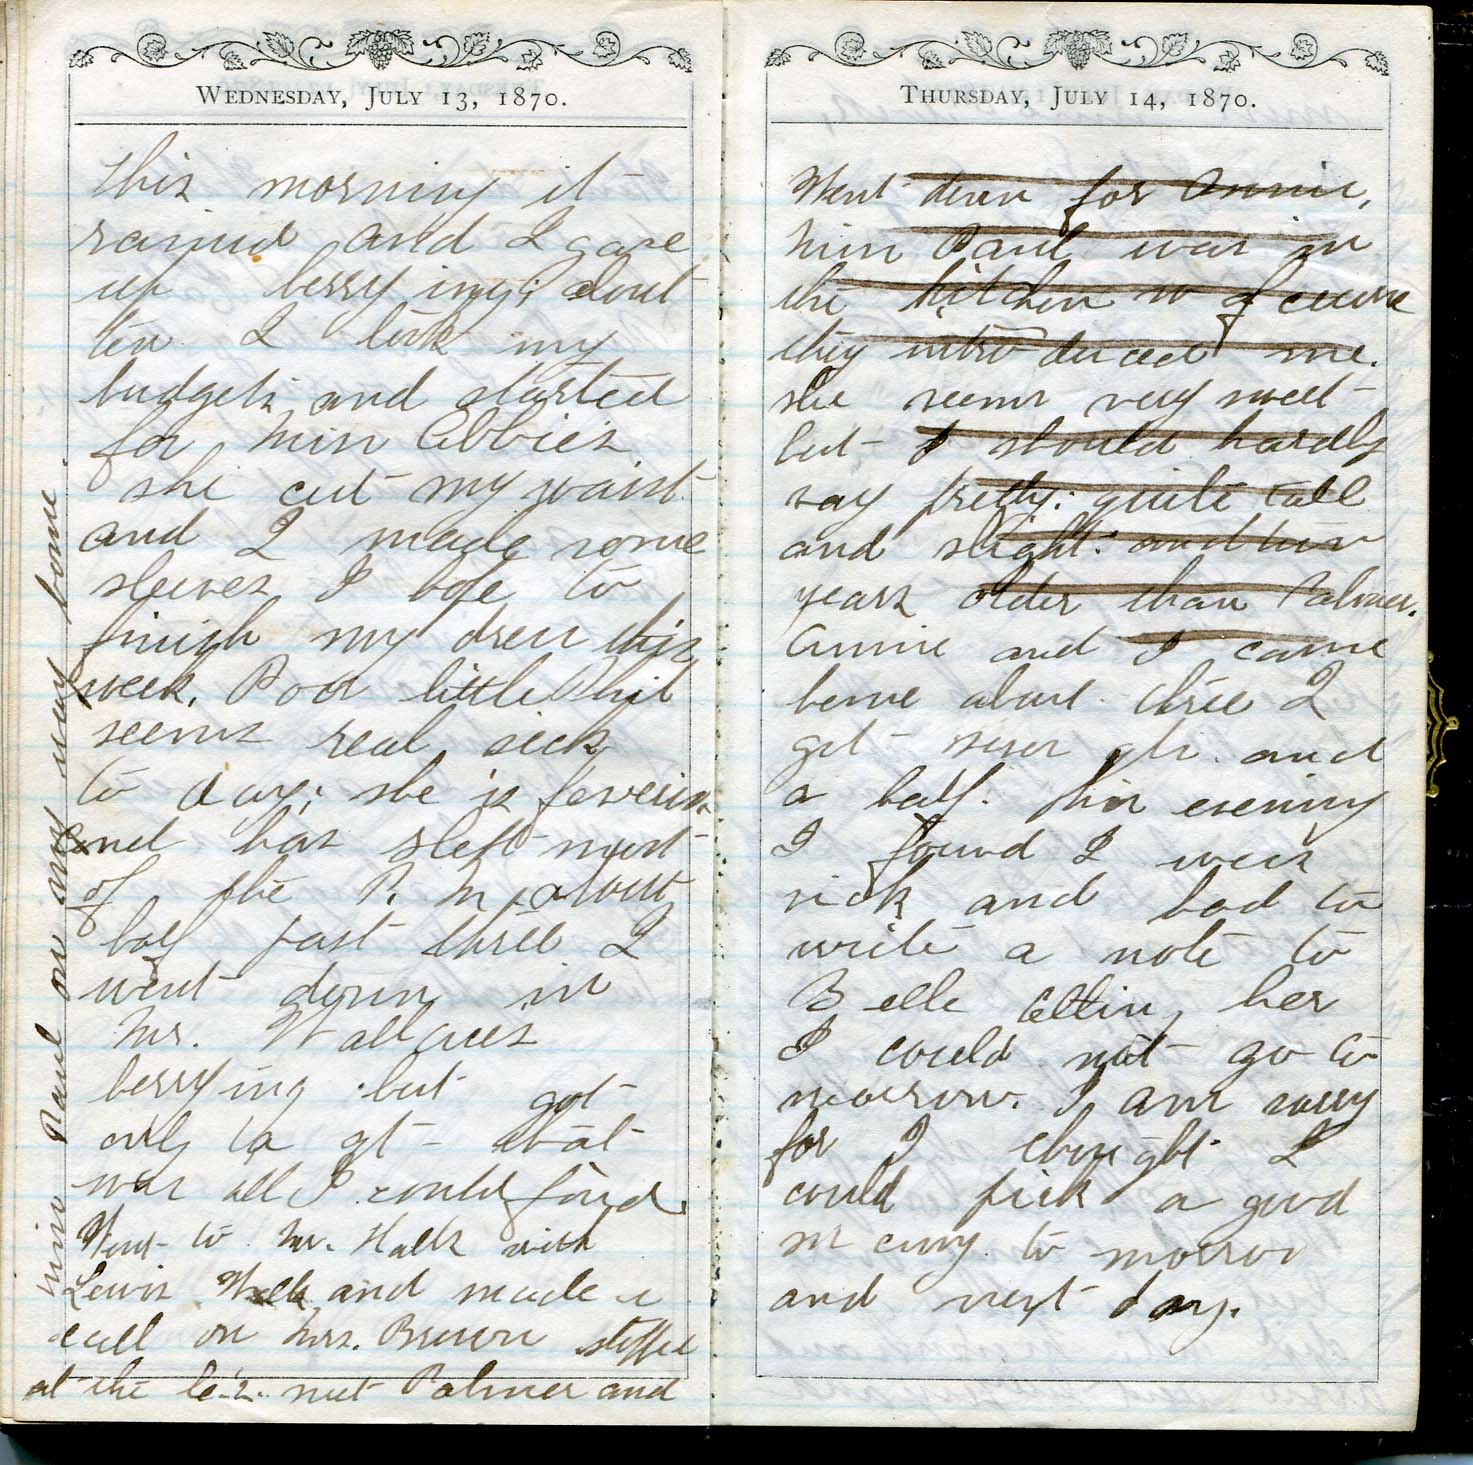 WEDNESDAY, JULY 13, 1870.
This morning it
rained and I gave
up berrying; about
ten I took my
budgets and started
for Miss Abbie's
she cut my waist
and I made some
sleeves I hope to
finish my dress this
week. Poor little Phil
seems real sick
to day; she is feverish
and has slept most
of the P. M. about
half past three I
went down in
Mr. Wallaces
berrying but got
only 1/2 qt that
was all I could find.
Went to Mr. Halls with
Lewis and made a
call on Mrs. Brown stopped
at the met Palmer and
Miss Paul on my way home
THURSDAY, JULY 14, 1870.
Went down for Annie,
Miss Paul was in
the kitchen so of course
they introduced me.
she seems very sweet
but I should hardly
say pretty: quite tall
and slight: and two
years older than Palmer.
Annie and I came
home about three I
got seven qts. and
a half. This evening
I found I was
sick and had to
write a note to
Belle her
I could not go to
morrow. I am sorry
for I thought I
could pick a good
many to morrow
and next day.